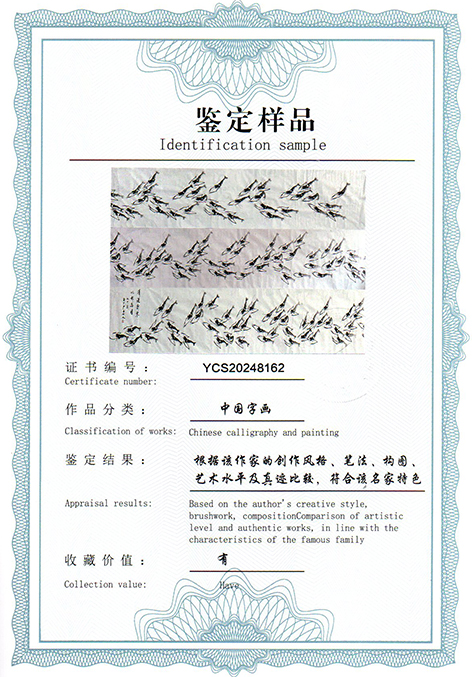 鉴定样品
Identification sample
证书编号：
YCS20248162
Certificate number:
作品分类：
中国字画
Classification of works:
Chinese calligraphy and painting
鉴定结果：
根据该作家的创作风格、笔法、构图、
艺术水平及真迹比较，符合该名家特色
Appraisal results:
Based on the author's creative style,
brushwork, compositionComparison of artistic
level and authentic works, in line with the
characteristics of the famous family
收藏价值：
有
Collection value:
Have